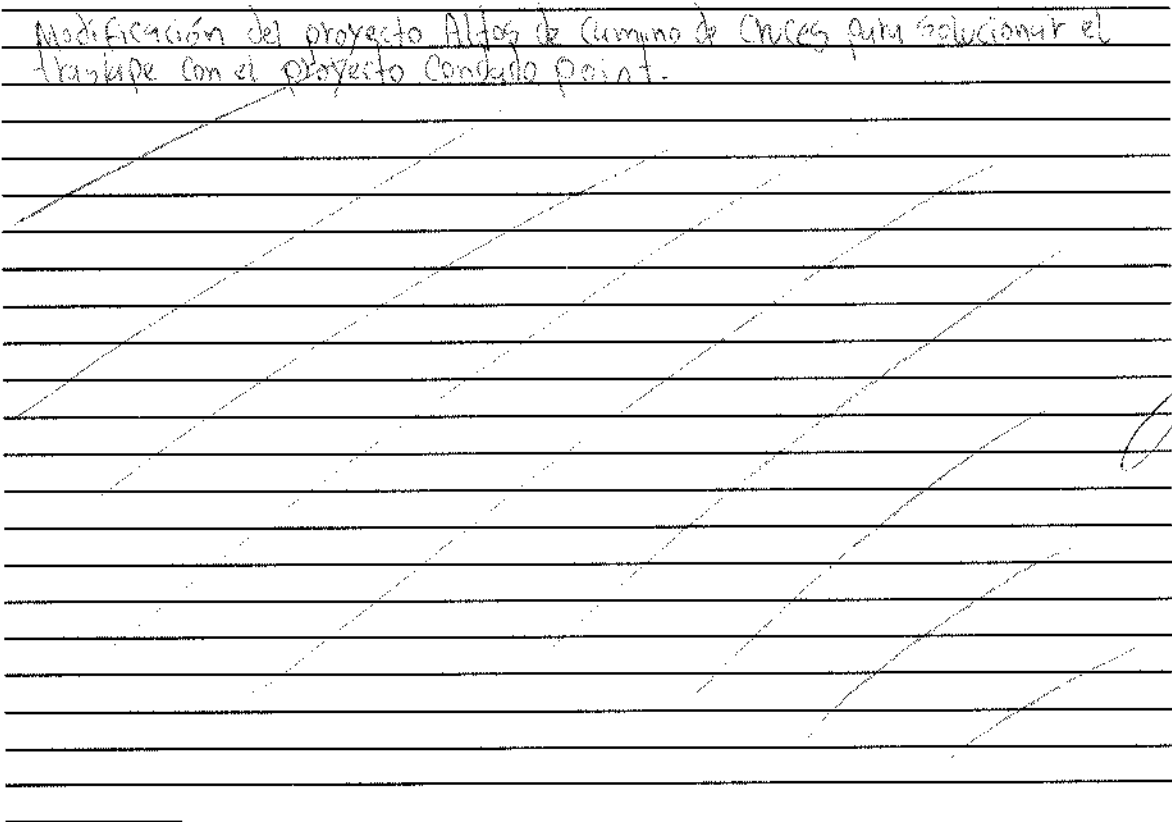 Modificación del proyecto Altos de Camino de Cruces para solucionar el
traslape con el proyecto Condado Point.